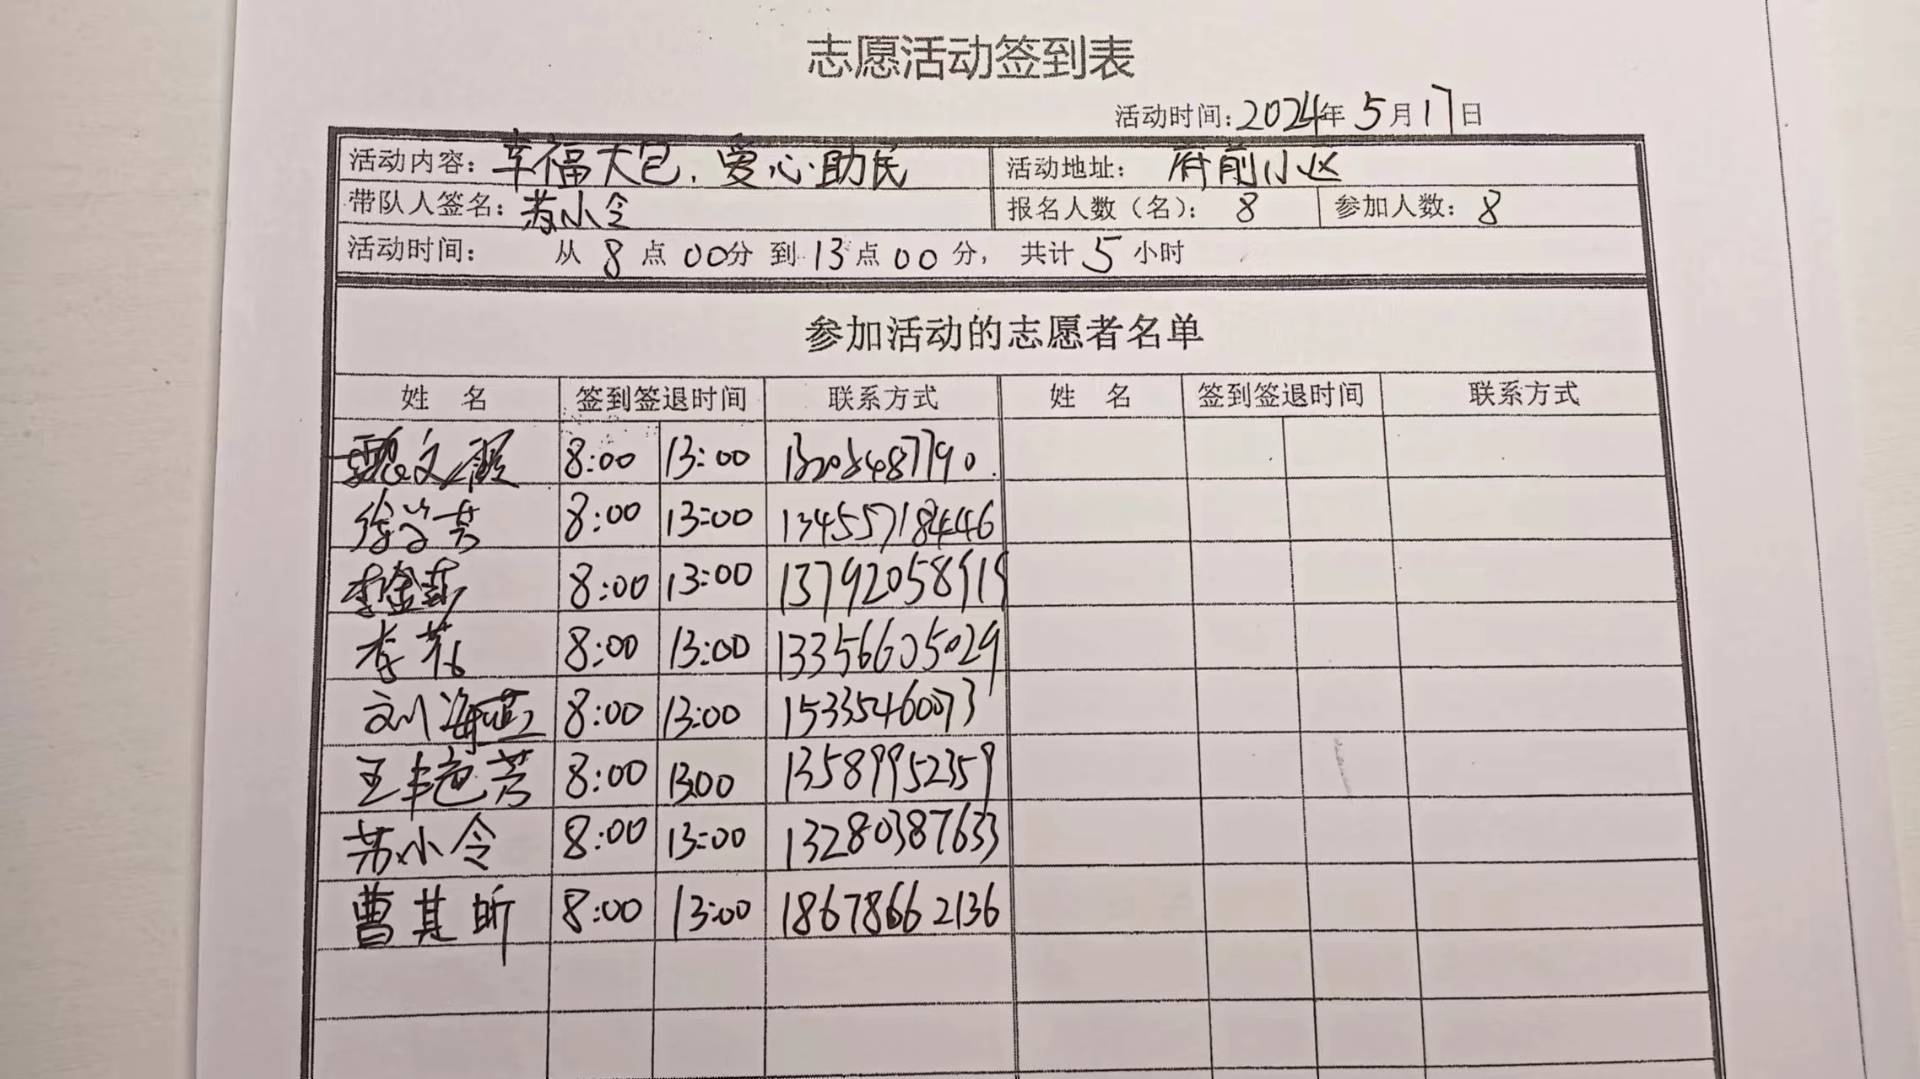 志愿活动签到表
活动时间:2024年5月17日
活动内容:幸福大包、爱心助民 活动地址: 府前小区
带队人签名:苏小令 报名人数(名): 8 参加人数: 8
活动时间: 从 8 点 00分 到 13点 00 分, 共计 5 小时
参加活动的志愿者名单
姓 名 签到签退时间 联系方式 姓 名 签到签退时间 联系方式
魏文 8:00 13:00
徐 8:00 13:00 13455718446
李金 8:00 13:00 13792058919
李花 8:00 13:00 13356605029
刘海燕 8:00 13:00 15335460073
王艳芳 8:00 13:00 13589952359
苏小令 8:00 13:00 13280387633
曹其昕 8:00 13:00 18678662136